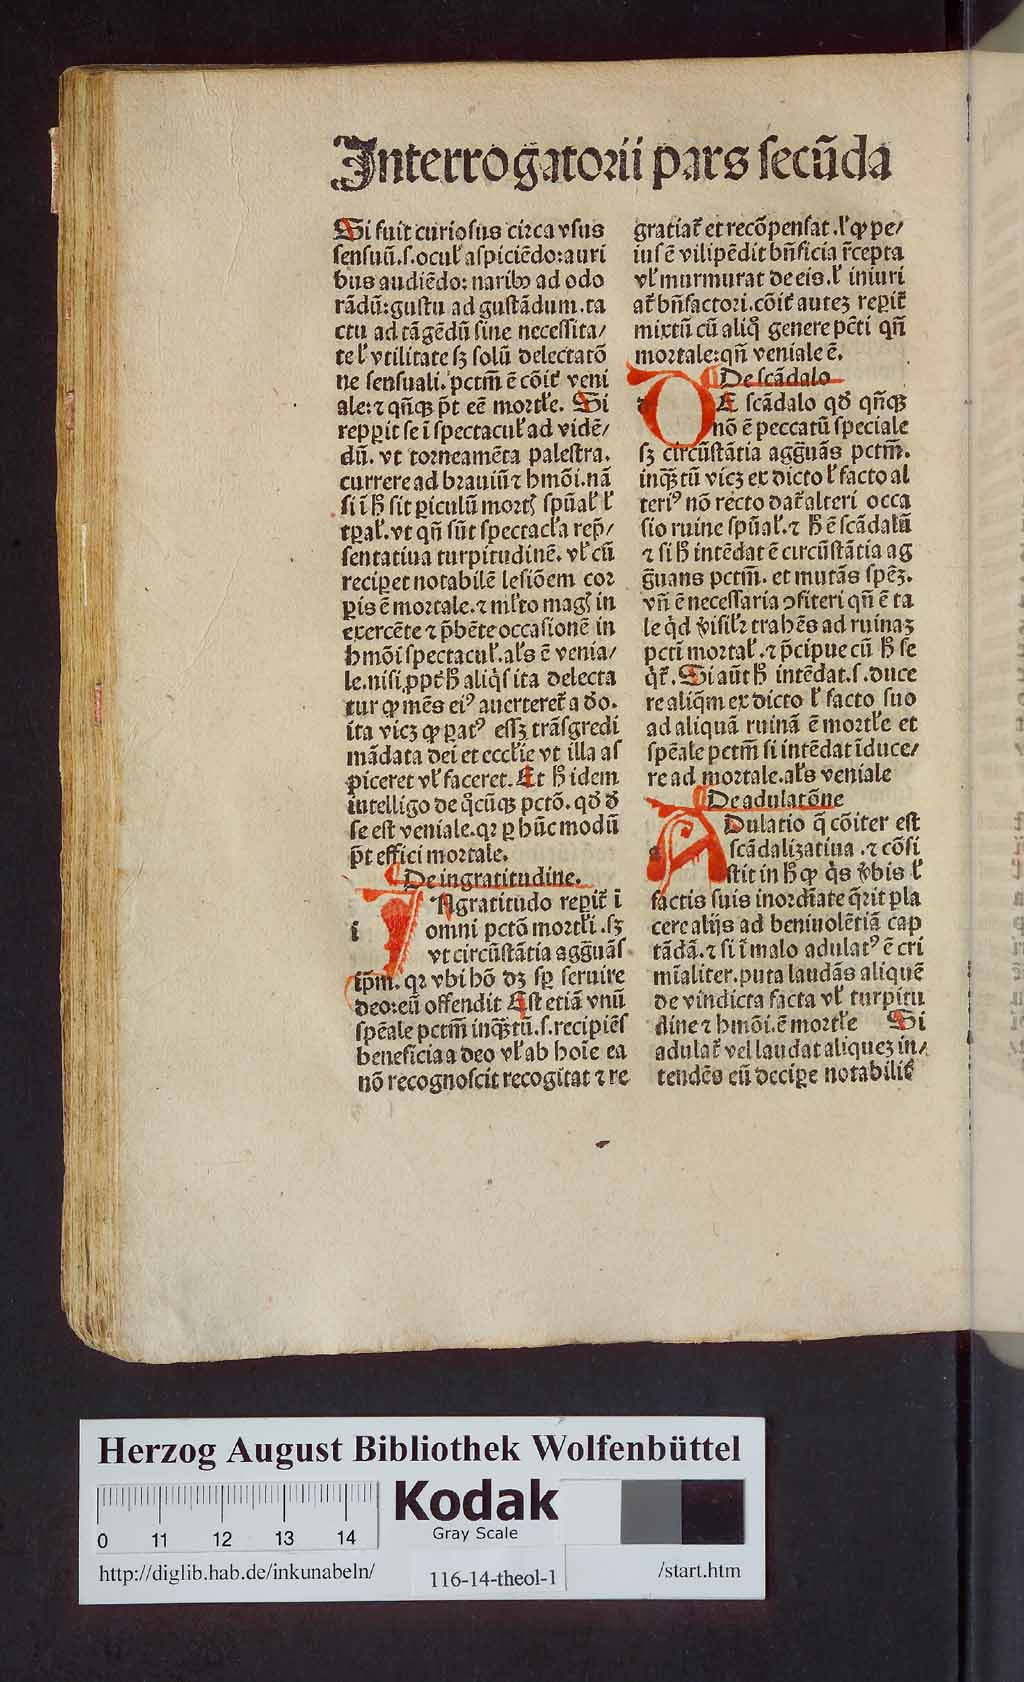 Interrogatorii pars secūda
Si fuit curiosus circa vsus
sensuū.s.ocul' aspiciēdo:auri
bus audiēdo: naribꝰ ad odo
rādū:gustu ad gustādum.ta
ctu ad tāgēdū sine necessita/
te l' vtilitate sꝫ solū delectatō
ne sensuali. pctm̄ ē cōit' veni
ale:⁊ qn̄qꝫ p̄t eē mortl'e. Si
repꝑit se ī spectacul' ad vidē/
dū. vt torneamēta palestra.
currere ad brauiū ⁊ hmōi.nā
si ī h̄ sit ꝑiculū mortꝭ spūal' l'
tꝑal'. vt qn̄ sūt spectacl'a rep̄/
sentatiua turpitudinē. vl' cū
recipet notabilē lesiōem cor
ꝑis ē mortale.⁊ ml'to magꝭ in
exercēte ⁊ p̄bēte occasionē in
hmōi spectacul'.al's ē venia/
le.nisi ꝓpt' h̄ aliq̄s ita delecta
tur ꝙ mēs ei⁹ auerteret' a do.
ita vicꝫ ꝙ ꝑat⁹ essꝫ trāsgredi
mādata dei et eccl'ie vt illa as
piceret vl' faceret. Et h̄ idem
intelligo de q̄cūqꝫ pctō. qd̄ d̄
se est veniale.qꝛ ꝑ hūc modū
p̄t effici mortale.
De ingratitudine.
i
INgratitudo reꝑit' ī
omni pctō mortl'i.sꝫ
vt circūstātia aggͣuās
ip̄m. qꝛ vbi hō dꝫ sꝑ seruire
deo:eū offendit Est etiā vnū
spēale pctm̄ inqͣꝫtū.s.recipiēs
beneficia a deo vl' ab hoīe ea
nō recognoscit recogitat ⁊ re
gratiat' et recōpensat.l' ꝙ pe/
ius ē vilipēdit bn̄ficia r̄cepta
vl' murmurat de eis.l' iniuri
at' bn̄factori.cōit' autez reꝑit'
mixtū cū aliq̄ genere pc̄ti qn̄
mortale:qn̄ veniale ē.
De scādalo
d
DE scādalo qd̄ qn̄qꝫ
nō ē peccatū speciale
sꝫ circūstātia aggͣuās pctm̄.
inqͣꝫtū vicꝫ ex dicto l' facto al
teri⁹ nō recto dat' alteri occa
sio ruine spūal'.⁊ h̄ ē scādalū
⁊ si h̄ intēdat ē circūstātia ag
gͣuans pctm̄. et mutās spēꝫ.
vn̄ ē necessaria ꝯfiteri qn̄ ē ta
le q̇d v̇isil'r trahēs ad ruinaꝫ
pcti mortal'.⁊ p̄cipue cū h̄ se
q̄t'. Si aūt h̄ intēdat.s.duce
re aliqͣm ex dicto l' facto suo
ad aliquā ruinā ē mortl'e et
spēale pctm̄ si intēdat īduce/
re ad mortale.al's veniale
De adulatōne
a
ADulatio q̄ cōiter est
scādalizatiua.⁊ cōsi
stit in h̄ ꝙ q̇s v̇bis l'
factis suis inordīate q̄rit pla
cere alijs ad beniuolētiā cap
tādā.⁊ si ī malo adulat⁹ ē cri
mīaliter.puta laudās aliquē
de vindicta facta vl' turpitu
dine ⁊ hmōi.ē mortl'e Si
adulat' vel laudat aliquez in/
tendēs eū decipe notabilit'
Herzog August Bibliothek Wolfenbüttel
0 11 12 13 14
Kodak
Gray Scale
http://diglib.hab.de/inkunabeln/
116-14-theol-1
/start.htm